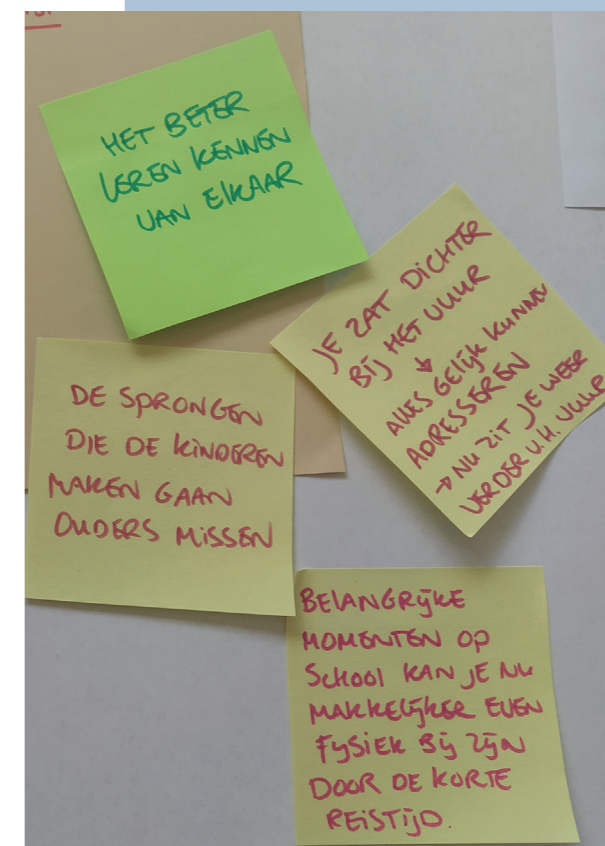 HET BETER
LEREN KENNEN
VAN ELKAAR
JE ZAT DICHTER
BIJ HET VUUR
↓
ALLES GELIJK KUNNEN
ADRESSEREN
→ NU ZIT JE WEER
VERDER V.H. VUUR
DE SPRONGEN
DIE DE KINDEREN
MAKEN GAAN
OUDERS MISSEN
BELANGRIJKE
MOMENTEN OP
SCHOOL KAN JE NU
MAKKELIJKER EVEN
FYSIEK BIJ ZIJN
DOOR DE KORTE
REISTIJD.